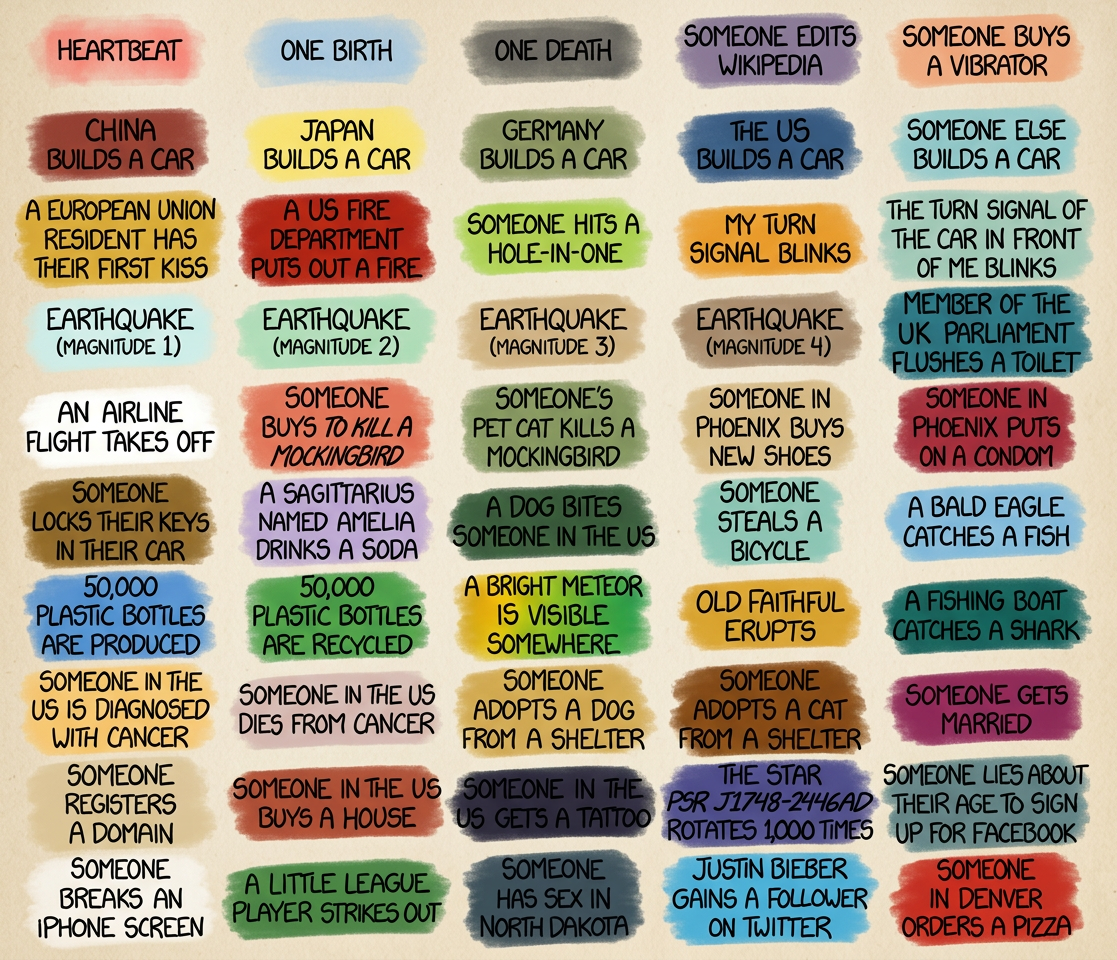 HEARTBEAT
ONE BIRTH
ONE DEATH
SOMEONE EDITS
WIKIPEDIA
SOMEONE BUYS
A VIBRATOR
CHINA
BUILDS A CAR
JAPAN
BUILDS A CAR
GERMANY
BUILDS A CAR
THE US
BUILDS A CAR
SOMEONE ELSE
BUILDS A CAR
A EUROPEAN UNION
RESIDENT HAS
THEIR FIRST KISS
A US FIRE
DEPARTMENT
PUTS OUT A FIRE
SOMEONE HITS A
HOLE-IN-ONE
MY TURN
SIGNAL BLINKS
THE TURN SIGNAL OF
THE CAR IN FRONT
OF ME BLINKS
EARTHQUAKE
(MAGNITUDE 1)
EARTHQUAKE
(MAGNITUDE 2)
EARTHQUAKE
(MAGNITUDE 3)
EARTHQUAKE
(MAGNITUDE 4)
MEMBER OF THE
UK PARLIAMENT
FLUSHES A TOILET
AN AIRLINE
FLIGHT TAKES OFF
SOMEONE
BUYS TO KILL A
MOCKINGBIRD
SOMEONE'S
PET CAT KILLS A
MOCKINGBIRD
SOMEONE IN
PHOENIX BUYS
NEW SHOES
SOMEONE IN
PHOENIX PUTS
ON A CONDOM
SOMEONE
LOCKS THEIR KEYS
IN THEIR CAR
A SAGITTARIUS
NAMED AMELIA
DRINKS A SODA
A DOG BITES
SOMEONE IN THE US
SOMEONE
STEALS A
BICYCLE
A BALD EAGLE
CATCHES A FISH
50,000
PLASTIC BOTTLES
ARE PRODUCED
50,000
PLASTIC BOTTLES
ARE RECYCLED
A BRIGHT METEOR
IS VISIBLE
SOMEWHERE
OLD FAITHFUL
ERUPTS
A FISHING BOAT
CATCHES A SHARK
SOMEONE IN THE
US IS DIAGNOSED
WITH CANCER
SOMEONE IN THE US
DIES FROM CANCER
SOMEONE
ADOPTS A DOG
FROM A SHELTER
SOMEONE
ADOPTS A CAT
FROM A SHELTER
SOMEONE GETS
MARRIED
SOMEONE
REGISTERS
A DOMAIN
SOMEONE IN THE US
BUYS A HOUSE
SOMEONE IN THE
US GETS A TATTOO
THE STAR
PSR J1748-2446AD
ROTATES 1,000 TIMES
SOMEONE LIES ABOUT
THEIR AGE TO SIGN
UP FOR FACEBOOK
SOMEONE
BREAKS AN
IPHONE SCREEN
A LITTLE LEAGUE
PLAYER STRIKES OUT
SOMEONE
HAS SEX IN
NORTH DAKOTA
JUSTIN BIEBER
GAINS A FOLLOWER
ON TWITTER
SOMEONE
IN DENVER
ORDERS A PIZZA